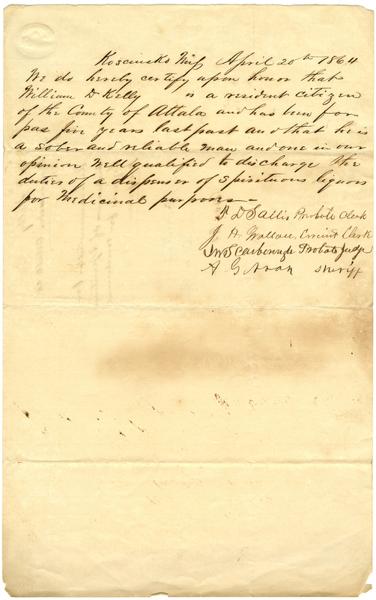 Kosciusko Miss April 20th 1864
We do hereby certify upon honor that
William D Kelly is a resident citizen
of the County of Attala and has been for
pas five years last past and that he is
a sober and reliable man and one in our
opinion well qualified to discharge the
duties of a dispenser of Spirituous liquors
for Medicinal purposes
D Sallis Probate Clerk
J. A. Wallace Circuit Clerk
Scarborough Probate Judge
A G Aron Sheriff